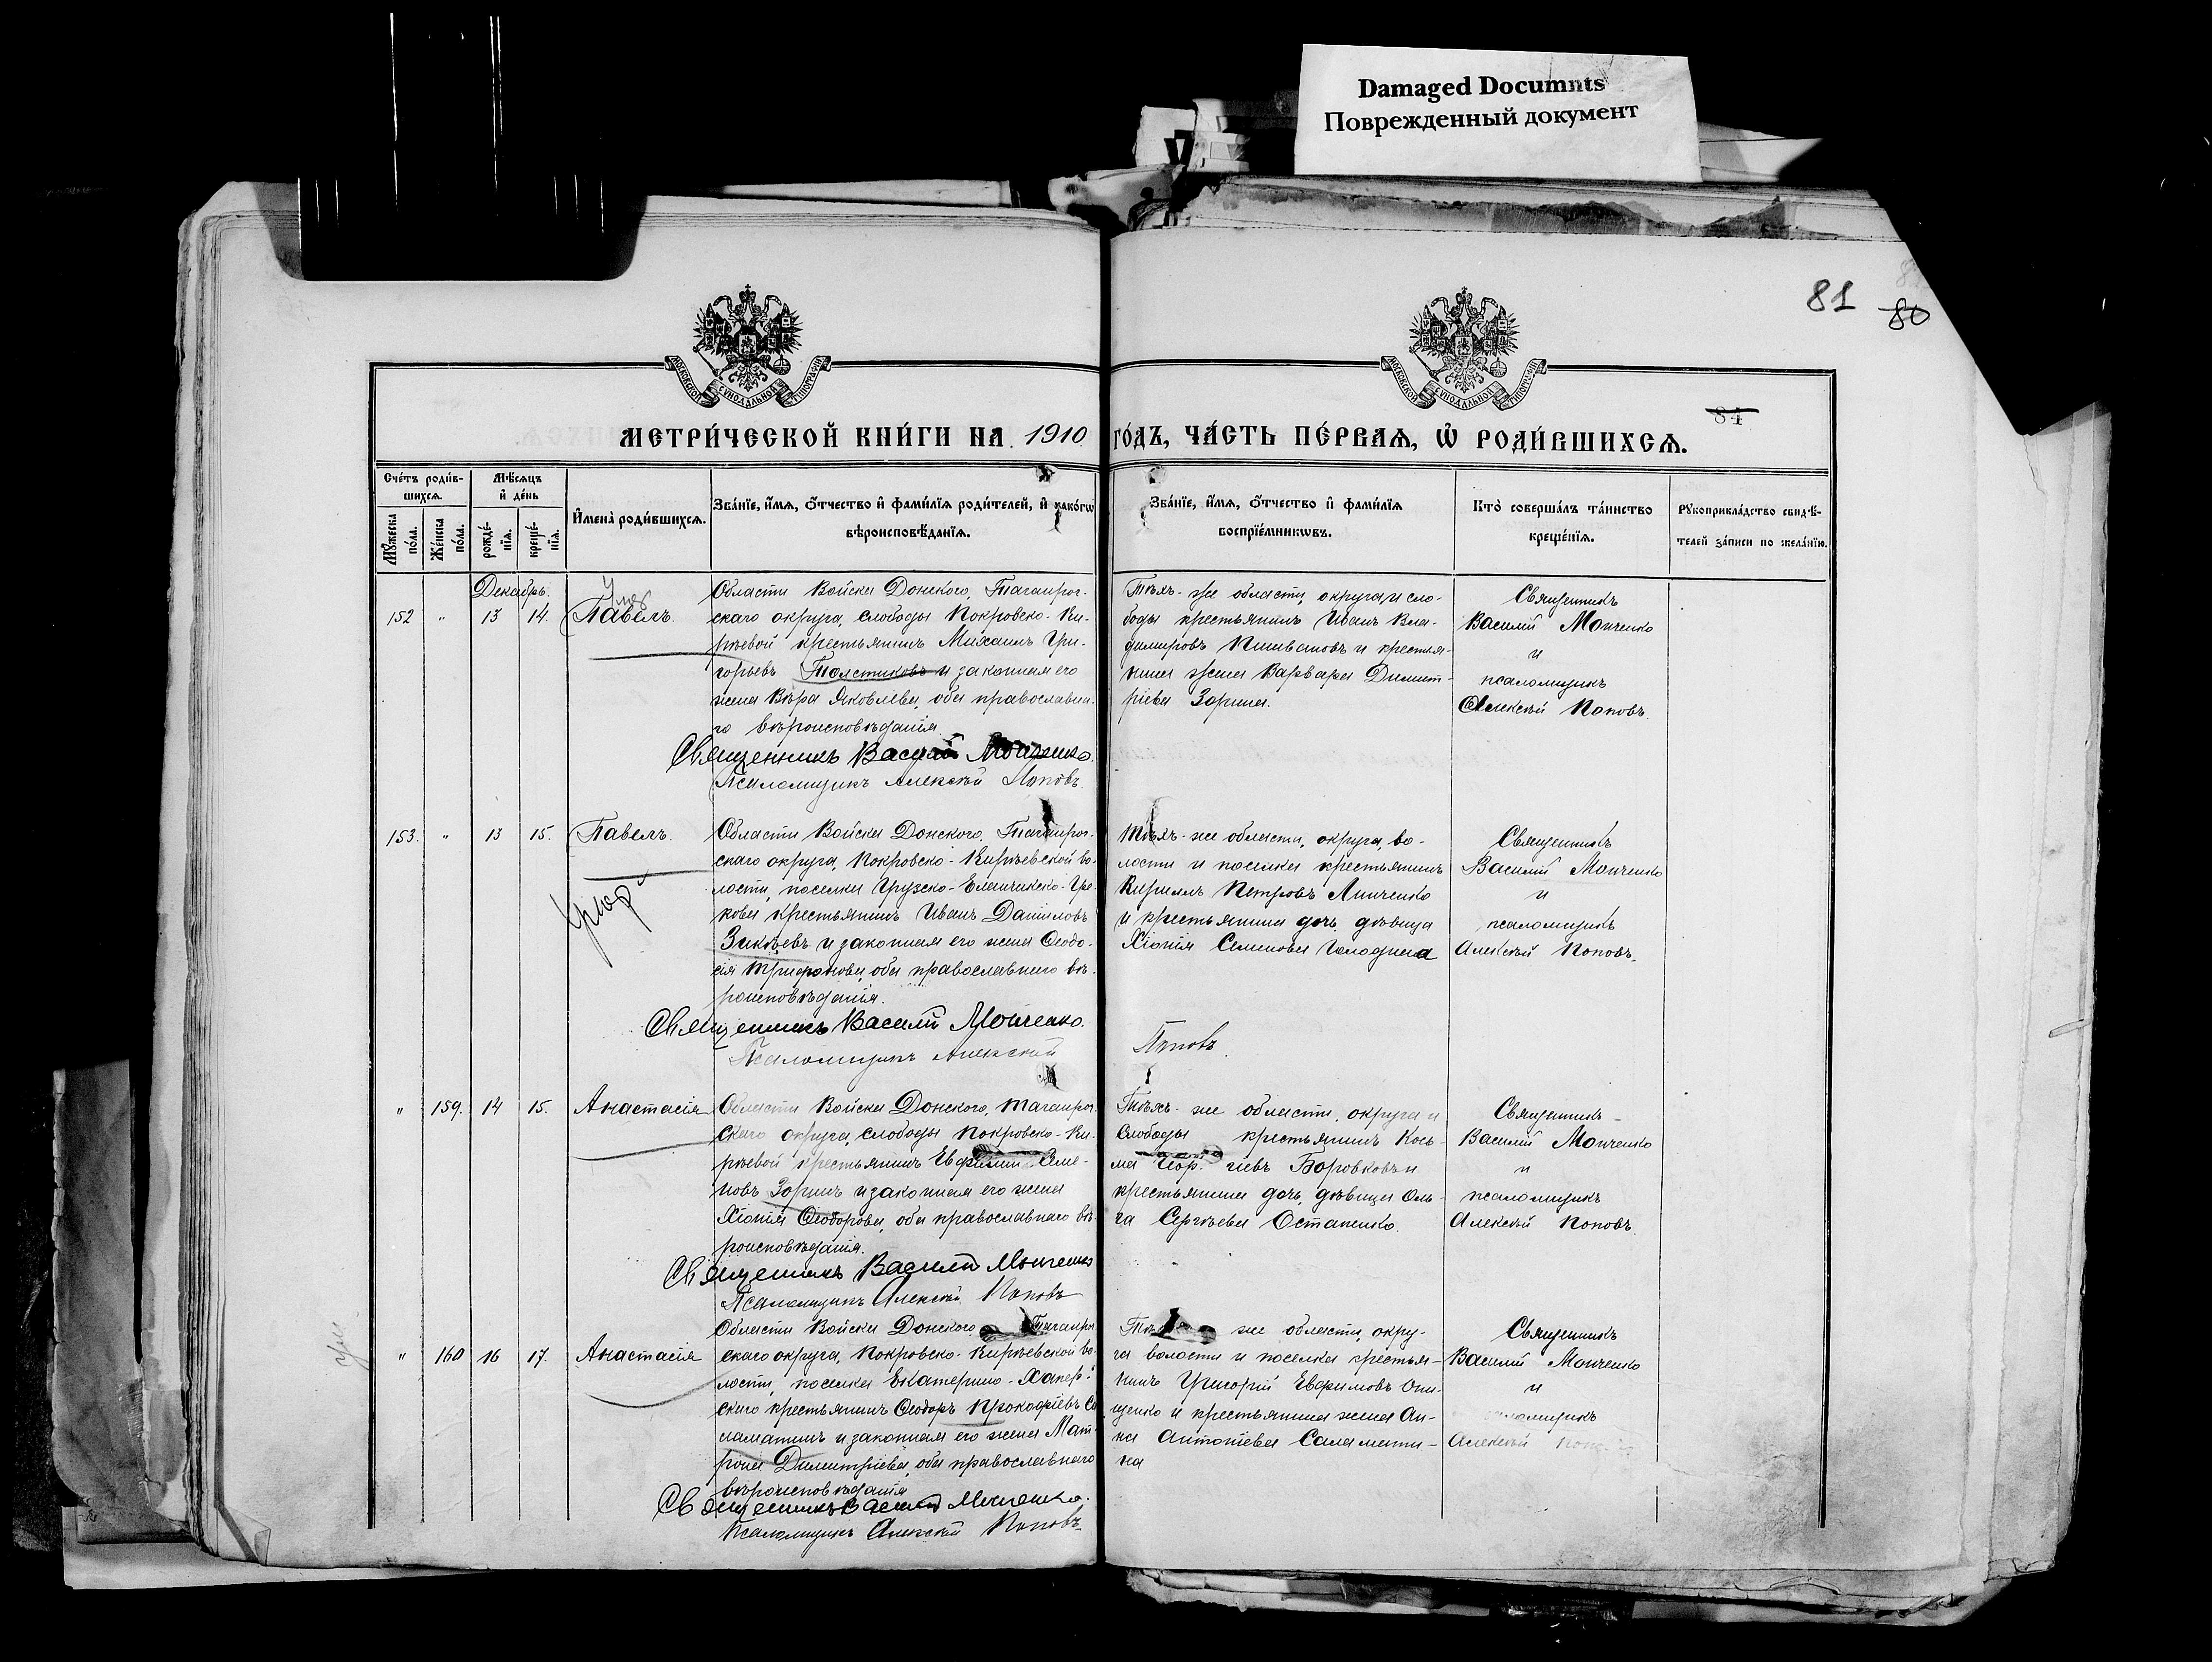 Damaged Documnts
Поврежденный документ
81 80
84
МОСКОВСКОЙ СУНОДАЛЬНОЙ ТИПОГРАФІИ
МОСКОВСКОЙ СУНОДАЛЬНОЙ ТИПОГРАФІИ
МЕТРИ́ЧЕСКОЙ КНИ́ГИ НА 1910 ГО́ДЪ, ЧА́СТЬ ПЕ́РВАѦ, Ѡ РОДИ́ВШИХСѦ.
Сче́тъ роди́в-
шихсѧ.
Мꙋ́жеска по́ла.
Же́нска по́ла.
Мѣ́сѧцъ и҆ де́нь
рожде́-нїѧ.
креще́-нїѧ.
И҆мена̀ роди́вшихсѧ.
Зва́нїе, и҆́мѧ, ѻ҆́тчество и҆ фами́лїѧ роди́телей, и҆ како́гѡ
вѣроисповѣ́данїѧ.
Зва́нїе, и҆́мѧ, ѻ҆́тчество и҆ фами́лїѧ
воспрїе́мникѡвъ.
Кто̀ соверша́лъ та́инство
креще́нїѧ.
Рꙋкоприкла́дство свидѣ́-
телей за́писи по жела́нїю.
Декабрь.
152 " 13 14. Павелъ.
Умер
Области Войска Донского, Таганрог-
скаго округа, слободы Покровско-Ки-
рѣевой крестьянинъ Михаилъ Гри-
горьевъ Толстиковъ и законная его
жена Вѣра Яковлева, оба православна-
го вѣроисповѣданія.
Священникъ Василій Монченко.
Псаломщикъ Алексѣй Поповъ.
Тѣхъ-же области, округа, и сло-
боды крестьянинъ Иванъ Вла-
димировъ Пшивановъ и крестья-
нина жена Варвара Димит-
ріева Зорина.
Священникъ
Василій Монченко
и
псаломщикъ
Алексѣй Поповъ.
153. " 13 15. Павелъ.
умер
Области Войска Донского, Таганрог-
скаго округа, Покровско-Кирѣевской во-
лости, поселка Грузско-Еланчикско-Гре-
кова крестьянинъ Иванъ Даниловъ
Зикѣевъ и законная его жена Ѳеодо-
сія Трифонова, оба православнаго вѣ-
роисповѣданія.
Священникъ Василій Монченко.
Псаломщикъ Алексѣй Поповъ.
Тѣхъ-же области, округа, во-
лости и поселка крестьянинъ
Кириллъ Петровъ Линченко
и крестьянина дочь, дѣвица
Хіонія Семенова Голоднева
Священникъ
Василій Монченко
и
псаломщикъ
Алексѣй Поповъ.
" 159. 14 15. Анастасія
Области Войска Донского, Таганрог-
скаго округа, слободы Покровско-Ки-
рѣевой крестьянинъ Евфимій Семе-
новъ Зоринъ и законная его жена
Хіонія Ѳеодорова, оба православнаго вѣ-
роисповѣданія.
Священникъ Василій Монченко
Псаломщикъ Алексѣй Поповъ
Тѣхъ-же области, округа и
слободы крестьянинъ Кось-
ма Геор. гіевъ Боровковъ и
крестьянина дочь, дѣвица Оль-
га Сергѣева Остапенко.
Священникъ
Василій Монченко
и
псаломщикъ
Алексѣй Поповъ.
" 160 16 17. Анастасія
Области Войска Донского, Таганрог-
скаго округа, Покровско-Кирѣевской во-
лости, поселка Екатерино-Хапер-
скаго крестьянинъ Ѳеодоръ Прокофіевъ Са-
ламатинъ и законная его жена Мат-
рона Димитріева, оба православнаго
вѣроисповѣданія
Священникъ Василій Монченко.
Псаломщикъ Алексѣй Поповъ
Тѣхъ же области, окру-
га волости и поселка крестья-
нинъ Григорій Евфимовъ Они-
щенко и крестьянина жена Ан-
на Антоніева Саламати-
на
Священникъ
Василій Монченко
и
псаломщикъ
Алексѣй